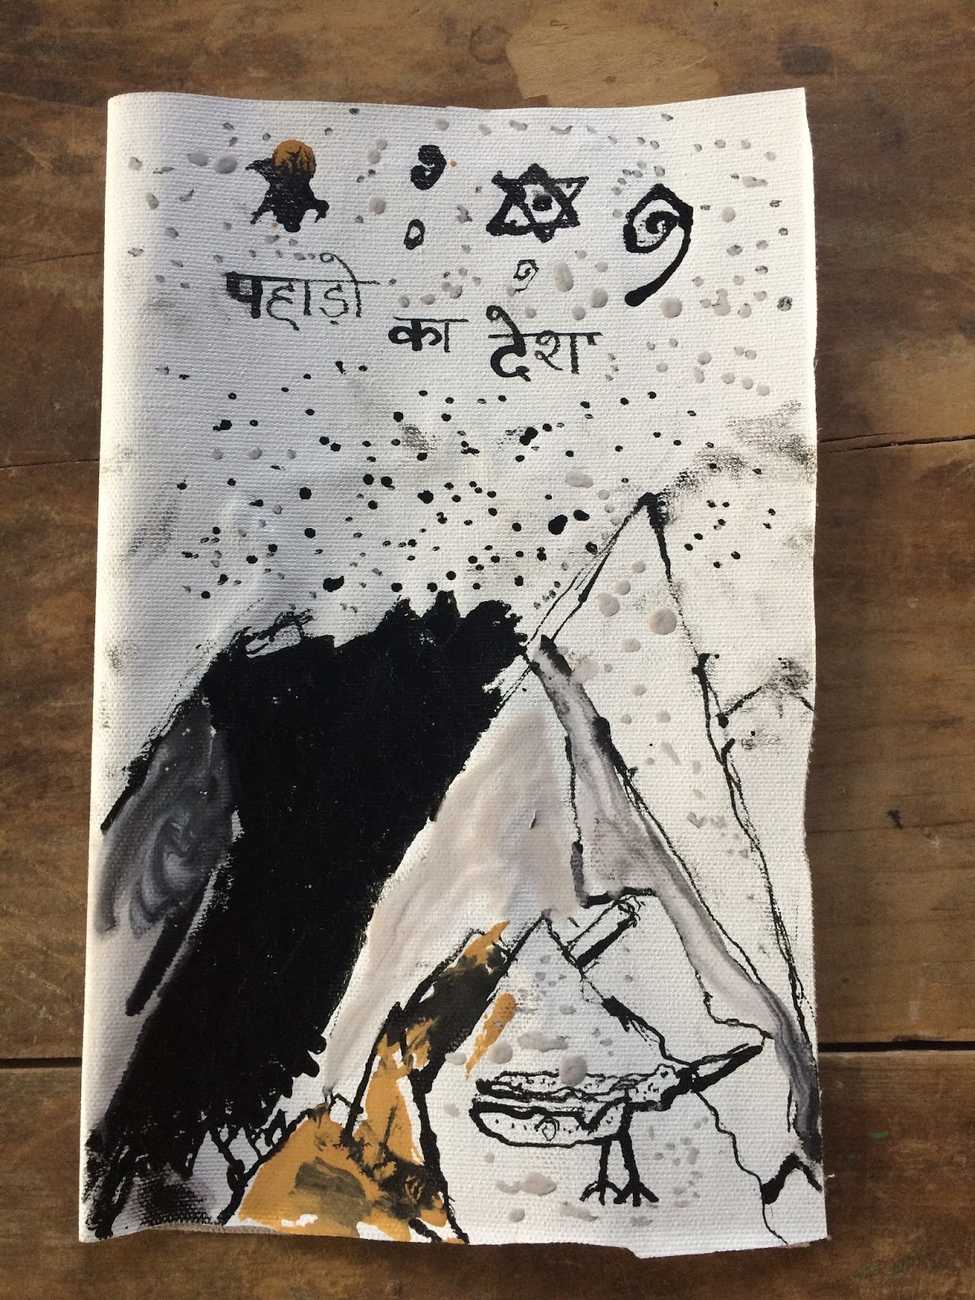 पहाड़ो का देश